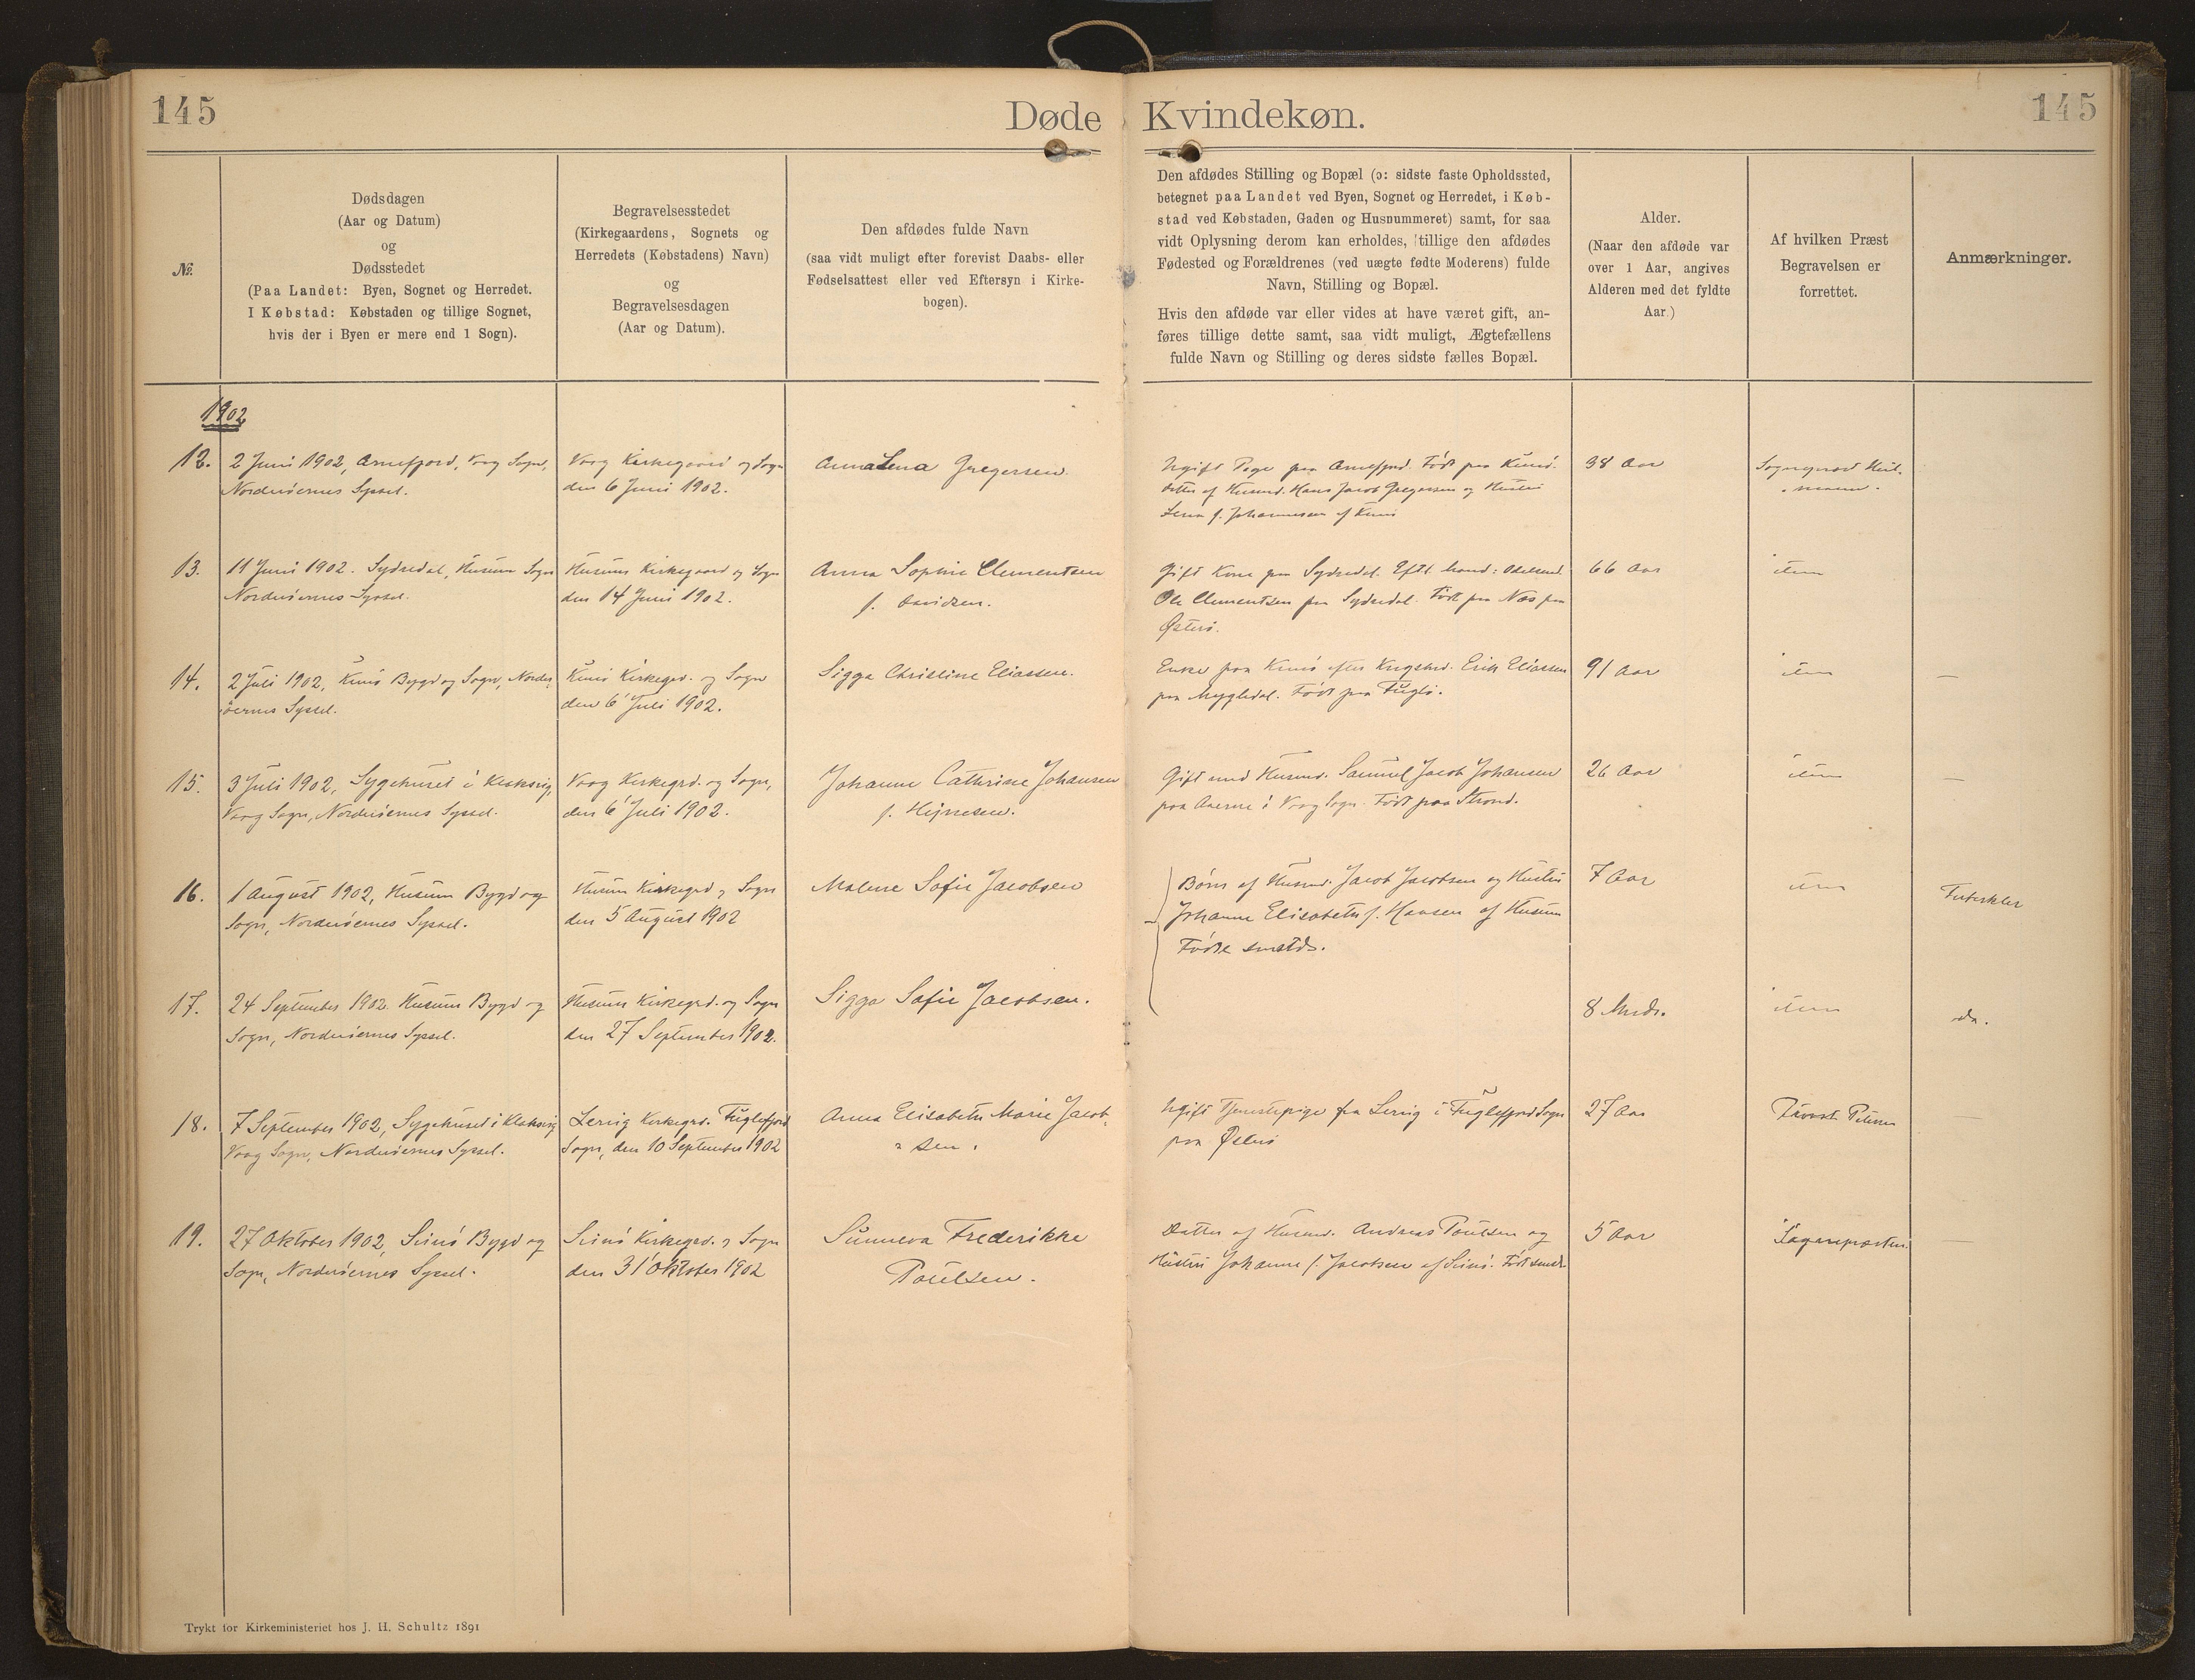 145
Døde
Kvindekøn.
145
№
Dødsdagen
(Aar og Datum)
og
Dødsstedet
(Paa Landet: Byen, Sognet og Herredet.
I Købstad: Købstaden og tillige Sognet,
hvis der i Byen er mere end 1 Sogn).
Begravelsesstedet
(Kirkegaardens, Sognets og
Herredets (Købstadens) Navn)
og
Begravelsesdagen
(Aar og Datum).
Den afdødes fulde Navn
(saa vidt muligt efter forevist Daabs- eller
Fødselsattest eller ved Eftersyn i Kirke-
bogen).
Den afdødes Stilling og Bopæl (ɔ: sidste faste Opholdssted,
betegnet paa Landet ved Byen, Sognet og Herredet, i Køb-
stad ved Købstaden, Gaden og Husnummeret) samt, for saa
vidt Oplysning derom kan erholdes, tillige den afdødes
Fødested og Forældrenes (ved uægte fødte Moderens) fulde
Navn, Stilling og Bopæl.
Hvis den afdøde var eller vides at have været gift, an-
føres tillige dette samt, saa vidt muligt, Ægtefællens
fulde Navn og Stilling og deres sidste fælles Bopæl.
Alder.
(Naar den afdøde var
over 1 Aar, angives
Alderen med det fyldte
Aar.)
Af hvilken Præst
Begravelsen er
forrettet.
Anmærkninger.
1902
12.
2 Juni 1902, Arnefjord, Vaag Sogn,
Norderöernes Syssel.
Vaag Kirkegaard og Sogn
den 6 Juni 1902.
Anna Lena Gregersen
Ugift Pige paa Arnefjord. Født paa Kunö.
Datter af Husmd. Hans Jacob Gregersen og Hustru
Lena f. Johannesen af Kunö
38 Aar
Sognepræst
13.
11 Juni 1902. Sydredal, Husum Sogn
Norderöernes Syssel.
Husums Kirkegaard og Sogn
den 14 Juni 1902.
Anna Sophie Clementsen
f. Davidsen.
Gift Kone paa Sydredal. Eftl. Mand: Odelsmd.
Ole Clementsen paa Sydredal. Født paa Næs paa
Østerö.
66 Aar
item
14.
2 Juli 1902, Kunö Bygd og Sogn, Norder-
öernes Syssel.
Kunö Kirkegrd. og Sogn
den 6 Juli 1902.
Sigga Christine Eliassen.
Enke paa Kunö efter Kngsbmd. Erik Eliassen
paa Mygledal. Født paa Fuglö.
91 Aar
item
—
15.
3 Juli 1902, Sygehuset i Klaksvig,
Vaag Sogn, Norderöernes Syssel.
Vaag Kirkegrd. og Sogn,
den 6 Juli 1902.
Johanne Cathrine Johansen
f. Hejnesen.
Gift med Husmd. Samuel Jacob Johansen
paa Aaerne i Vaag Sogn. Født paa Strand.
26 Aar
item
—
16.
1 August 1902, Husum Bygd og
Sogn, Norderöernes Syssel.
Husum Kirkegrd og Sogn
den 5 August 1902
Malene Sofie Jacobsen
Børn af Husmd. Jacob Jacobsen og Hustru
Johanne Elisabeth f. Hansen af Husum
Födte smstds.
7 Aar
item
Tuberkler
17.
24 September 1902. Husum Bygd og
Sogn, Norderöernes Syssel.
Husums Kirkegrd. og Sogn
den 27 September 1902.
Sigga Sofie Jacobsen.
8 Mndr.
item
do.
18.
7 September 1902, Sygehuset i Klaksvig
Vaag Sogn, Norderöernes Syssel.
Lervig Kirkegrd. Fuglefjord
Sogn, den 10 September 1902
Anna Elisabeth Marie Jacob-
sen.
Ugift Tjenestepige fra Lervig i Fuglefjord Sogn
paa Østerö
27 Aar
Provst Petersen
—
19.
27 Oktober 1902, Svinö Bygd og
Sogn, Norderöernes Syssel.
Svinö Kirkegrd. og Sogn
den 31 Oktober 1902
Sunneva Frederikke
Poulsen.
Datter af Husmd. Andreas Poulsen og
Hustru Johanne f. Jacobsen af Svinö. Født smds.
5 Aar
Sognepræsten.
—
Trykt for Kirkeministeriet hos J. H. Schultz 1891